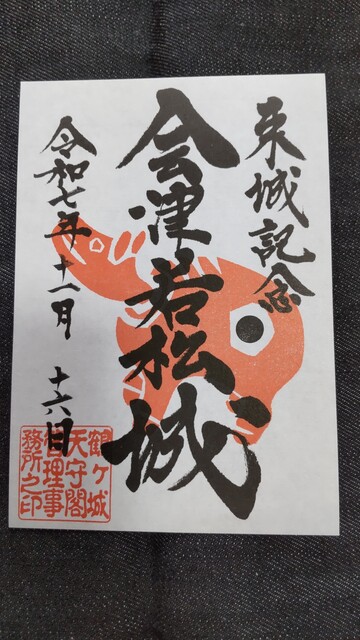 来城記念
会津若松城
令和七年十一月十六日
鶴ヶ城
天守閣
管理事
務所之印